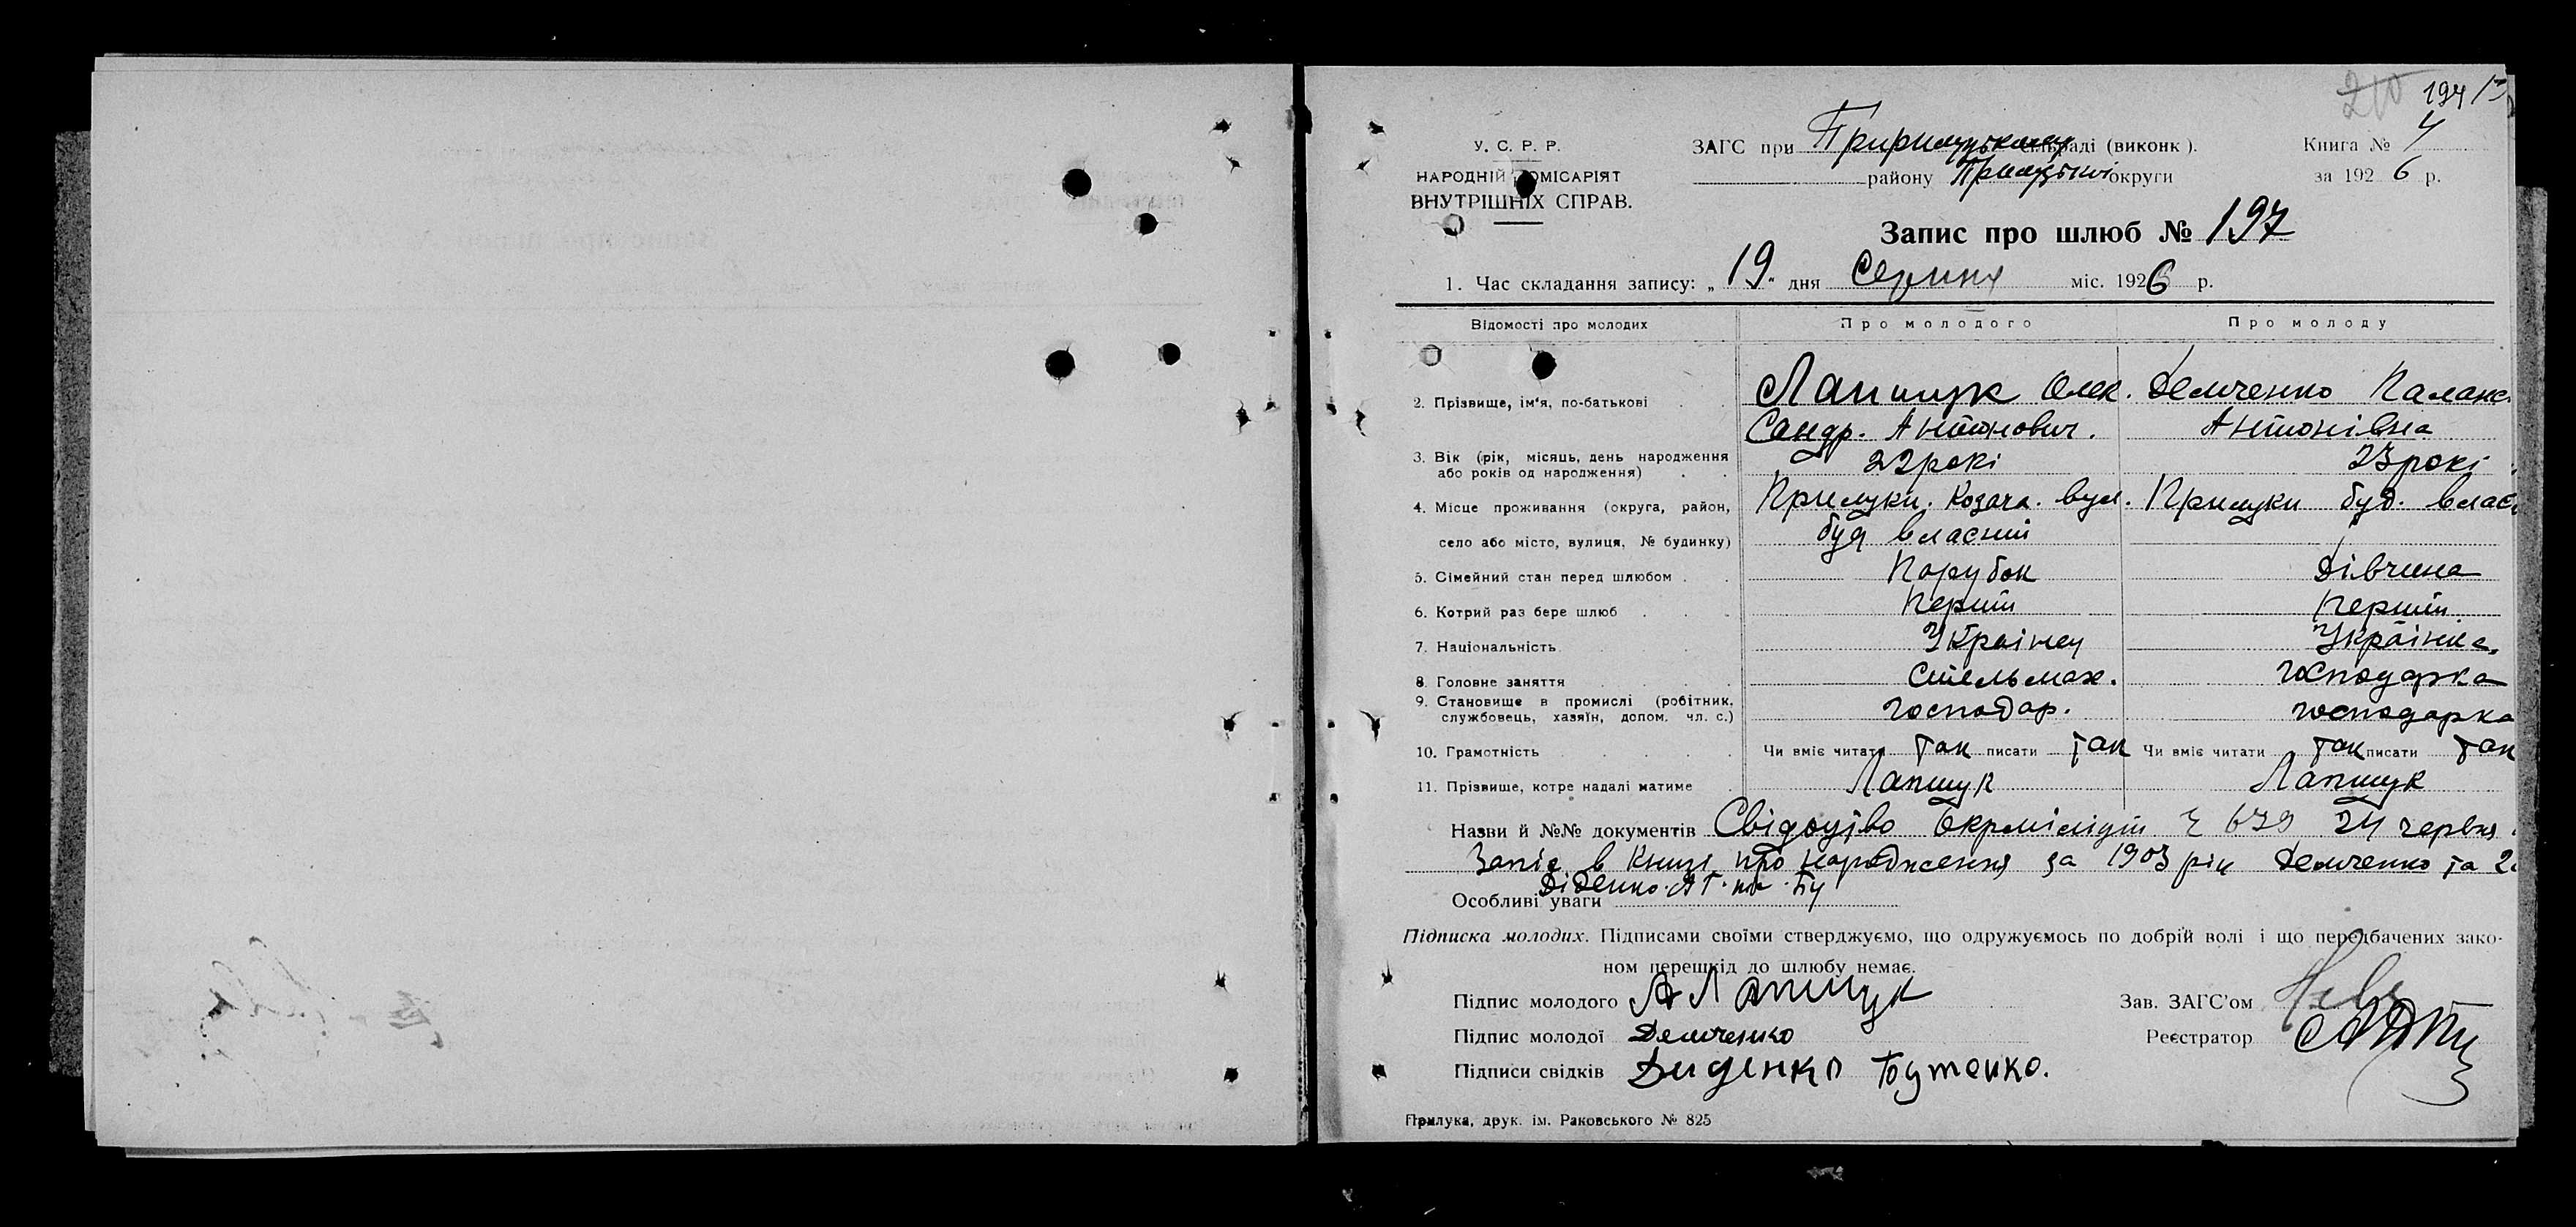 210 197
У. С. Р. Р.
НАРОДНІЙ КОМІСАРІЯТ
ВНУТРІШНІХ СПРАВ.
ЗАГС при Прилуцькому сільраді (виконк).
району Прилуцької округи
Книга № 4
за 1926 р.
Запис про шлюб № 197
1. Час складання запису: „19" дня Серпня міс. 1926 р.
Відомості про молодих Про молодого Про молоду
2. Прізвище, ім'я, по-батькові Лапшук Олек. Демченко Палаж
Сандр. Антонович. Антонівна
3. Вік (рік, місяць, день народження або років од народження) 22 рокі 23 рокі
4. Місце проживання (округа, район, Прилуки. Козача. вул. Прилуки буд. влас
село або місто, вулиця, № будинку) буд власний
5. Сімейний стан перед шлюбом Парубок Дівчина
6. Котрий раз бере шлюб Перший Перший
7. Національність Українец Українка.
8. Головне заняття Стельмах. господарка
9. Становище в промислі (робітник, службовець, хазяїн, допом. чл. с.) господар. господарка
10. Грамотність Чи вміє читати так писати так Чи вміє читати так писати так
11. Прізвище, котре надалі матиме Лапшук Лапшук
Назви й №№ документів Свідоцтво Окрміліціі 679 24 червня
Запіс в книзі про народження за 1903 рік Демченко та
Діденко
Особливі уваги
Підписка молодих. Підписами своїми стверджуємо, що одружуємось по добрій волі і що передбачених зако-
ном перешкід до шлюбу немає.
Підпис молодого А Лапшук Зав. ЗАГС'ом
Підпис молодої Демченко Реєстратор
Підписи свідків Диденко Бутенко.
Прилука, друк. ім. Раковського № 825